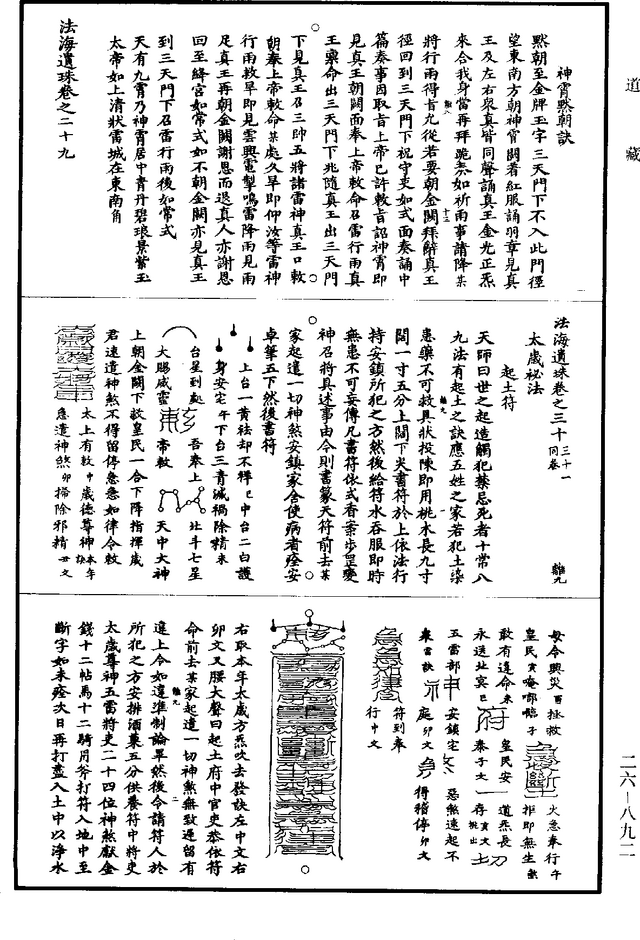 道藏
神霄默朝訣
默朝至金牌玉字三天門下不入此門徑
望東南方朝神霄闕着紅服誦羽章見真
王及左右眾真皆同聲誦真王金光正炁
來合我身當再拜跪奏如祈雨事請降某
將行雨得旨九從若要朝金闕拜辭真王
徑回到三天門下祝守吏如式面奏誦中
篇奏事因取旨上帝已許敕旨詔神霄即
見真王朝闕面奏上帝敕命召雷行雨真
王稟命出三天門下兆隨真王出三天門
下見真王召三帥五將諸雷神真王口敕
朝奏上帝敕命某處久旱即仰汝等雷神
行雨救旱即見雲興電掣鳴雷降雨見雨
足真王再朝金闕謝恩而退真人亦謝恩
回至絳宮如常式如不朝金闕亦見真王
到三天門下召雷行雨後如常式
天有九霄乃神霄居中青丹碧琅景紫玉
太帝如上清狀雷城在東南角
法海遺珠卷之二十九
法海遺珠卷之三十 三十一同卷
太歲祕法
起土符
天師曰世之起造觸犯禁忌死者十常八
九法有起土之訣應五姓之家若犯土染
患藥不可救具狀投陳即用桃木長九寸
闊一寸五分上闊下尖書符於上依法行
持安鎮所犯之方然後給符水吞服即時
無患不可妄傳凡書符依式香案步罡變
神召將具述事由令則書篆天符前去某
家起遣一切神煞安鎮家舍使病者痊安
卓筆五下然後書符
上台一黃祛却不祥巳中台二白護
身安宅午下台三青滅禍除精未
台星到處 吾奉上 北斗七星
大賜威靈 帝敕 天中大神
上朝金闕下救皇民一合下降指揮歲
君速遣神煞不得留停急急如律令敕
太上有敕中歲德尊神本年訣
急遣神煞卯掃除邪精丑文
安令興災酉拯救
皇民寅唵嘟臨子 火急奉行午
敢有違命未 拒即無生
永送北冥巳 皇民安 道炁長
五雷部 泰子文 存寅文
奉雷訣 安鎮宅 惡煞速起不
庭卯文 得稽停卯文
符到奉
行中文
右取本年太歲方炁吹去發訣左中文右
卯文叉腰大聲曰起土府中官吏恭依符
命前去某家起遣一切神煞無致遲留有
違上令如違準制論畢然後令請符人於
所犯之方安排酒菓五分供養符中將吏
太歲尊神五雷將吏二十四位神煞獻金
錢十二帖馬十二騎用斧打符入地中至
斷字如未痊次日再打盡入土中以淨水
二六－八九二